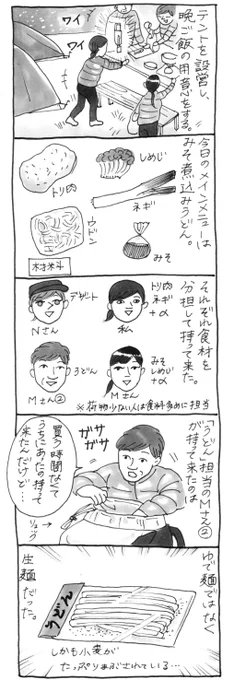 テントを設営し、
晩ご飯の用意をする。
ワイ
ワイ
今日のメインメニューは
みそ煮込みうどん。
しめじ
トリ肉
ネギ
ウドン
みそ
材料
それぞれ食材を
分担して持って来た。
デザート
Nさん
トリ肉
ネギ
+α
私
うどん
Mさん②
みそ
しめじ
+α
Mさん
※荷物少ない人は食料多めに担当
「うどん担当のMさん②
が持って来たのは
ガサ
ガサ
買う時間なくて
うちにあたの持って
来たんだけど…
リュック
ゆで麺ではなく
生麺だった。
うどん
しかも小麦が
たっぷりまぶされている…